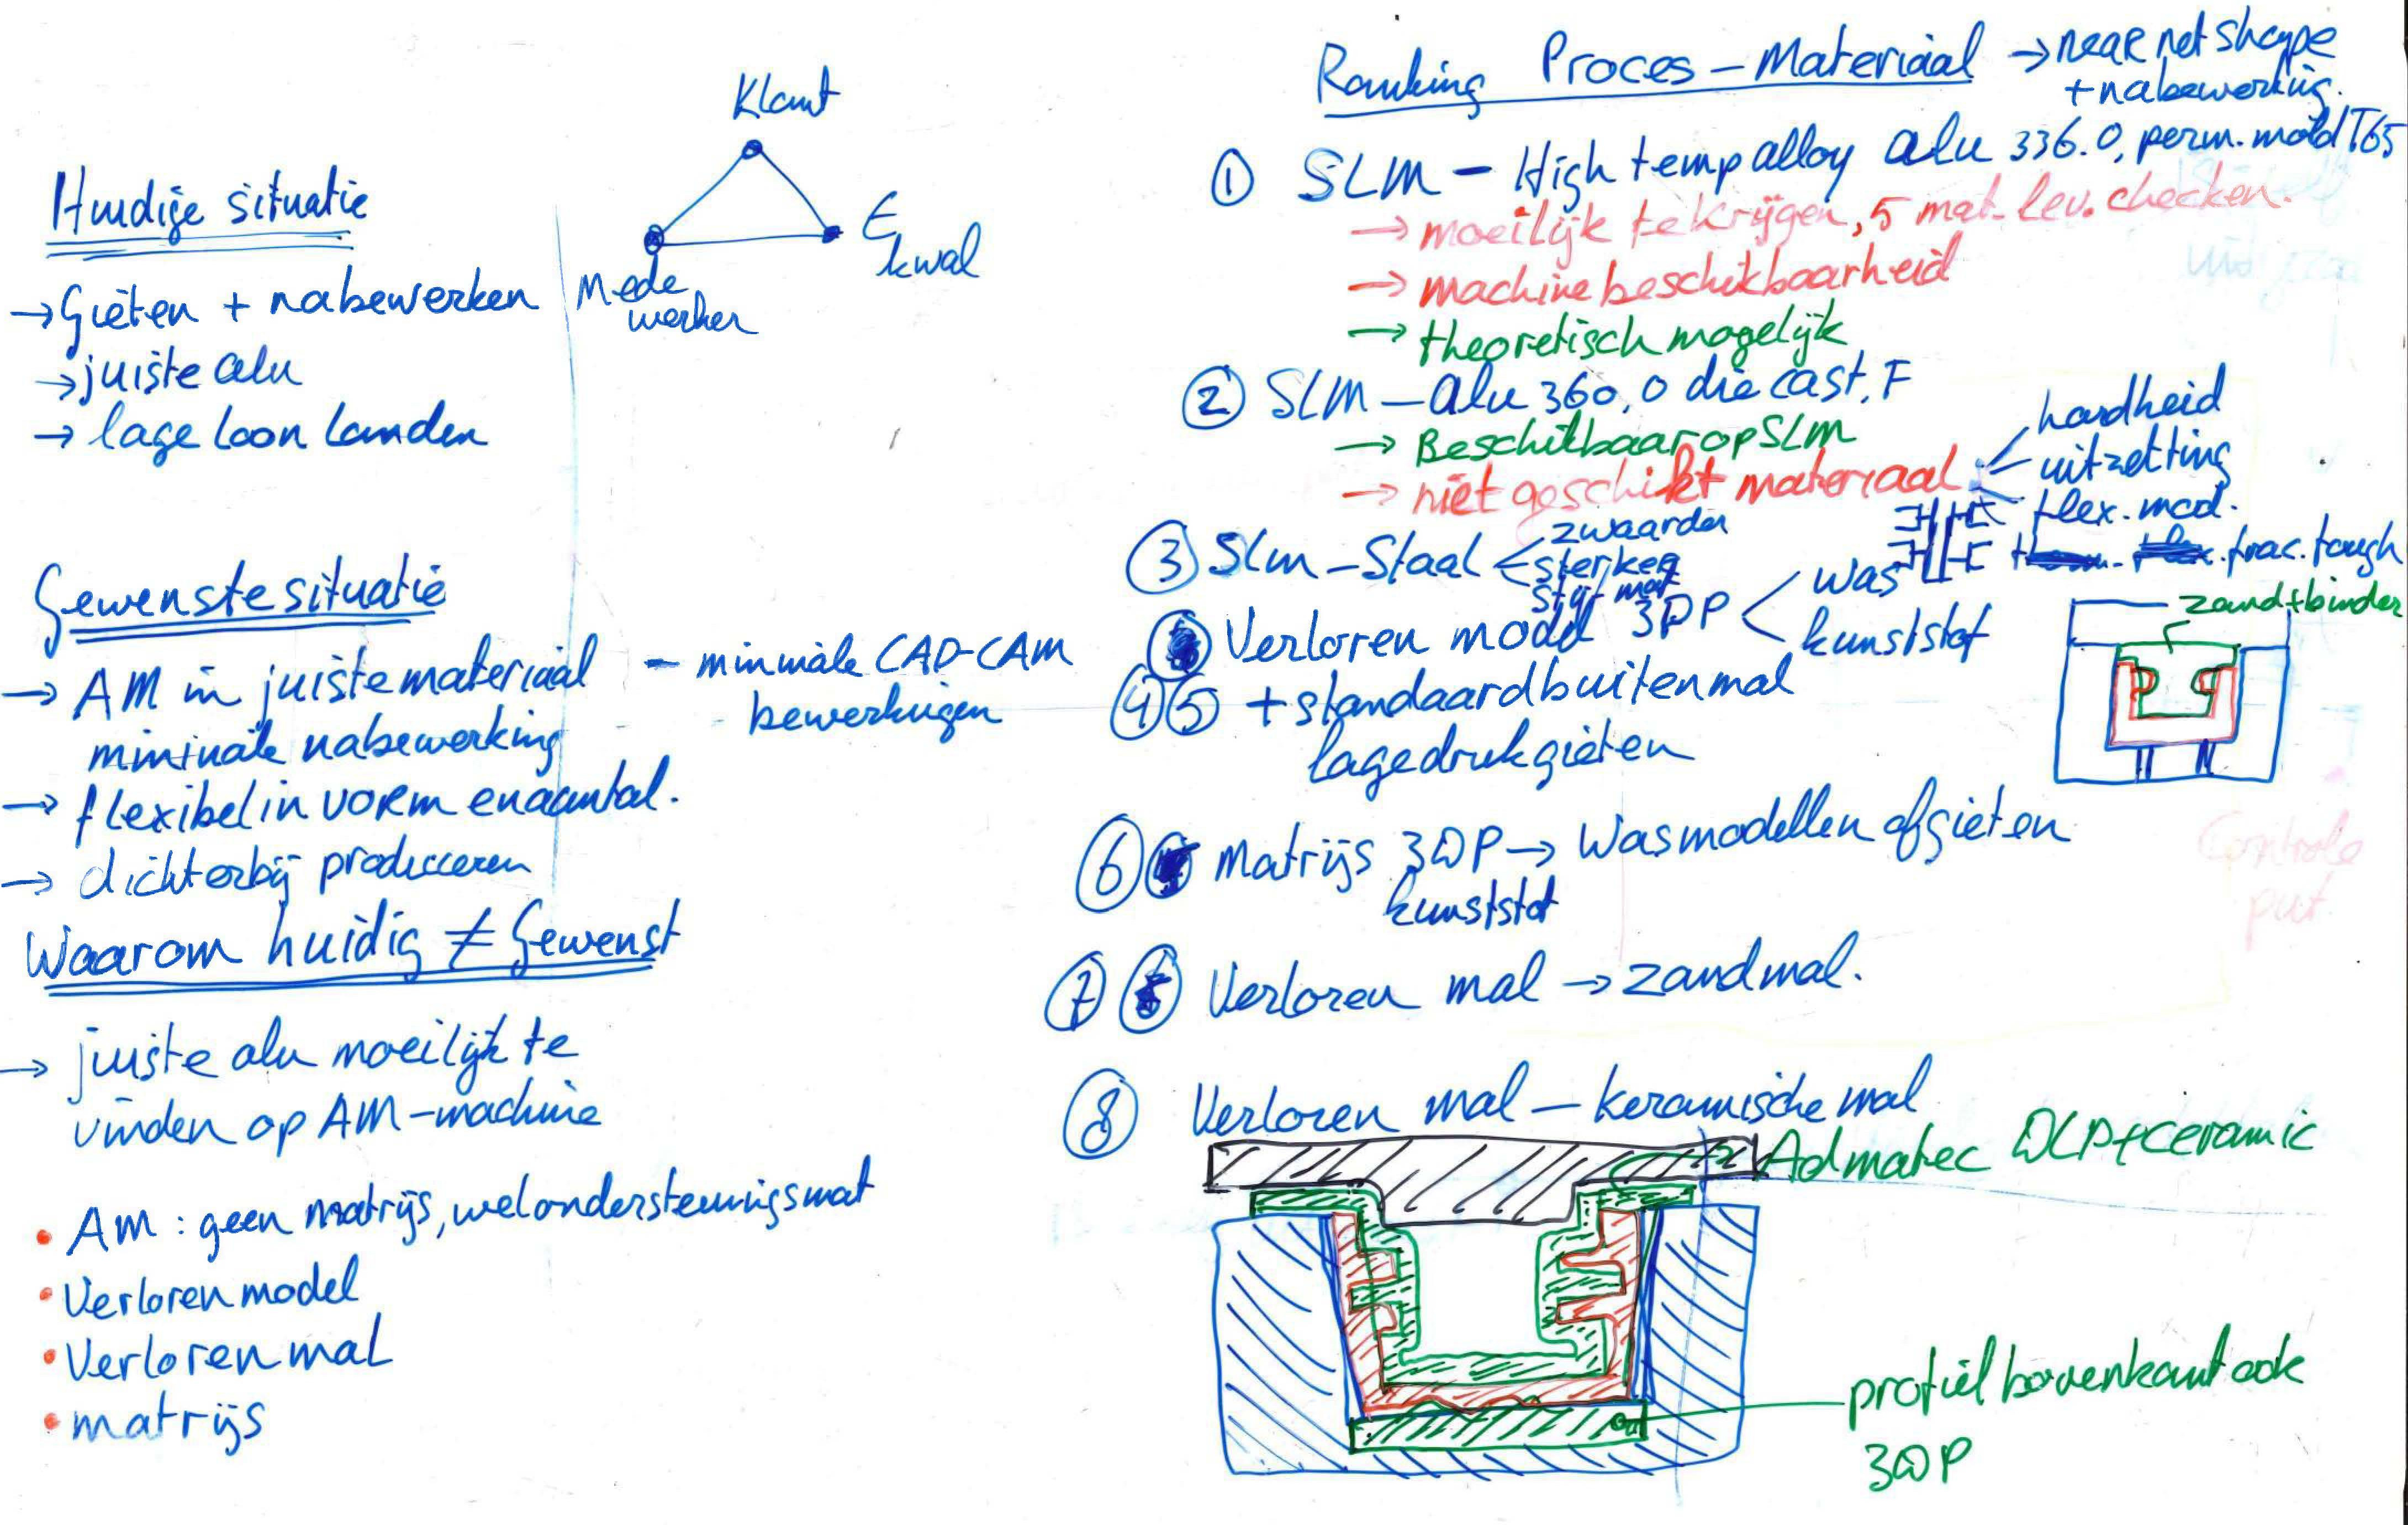 Huidige situatie
→ Gieten + nabewerken
→ juiste alu
→ lage loon landen
Klant
Mede
werker
€
kwal
Gewenste situatie
→ AM in juiste materiaal
minimale nabewerking
- minimale CAD-CAM
- bewerkingen
→ flexibel in vorm en aantal.
→ dichterbij produceren
Waarom huidig ≠ Gewenst
→ juiste alu moeilijk te
vinden op AM-machine
• AM : geen matrijs, wel ondersteuningsmat
• Verloren model
• Verloren mal
• matrijs
Ranking Proces - Materiaal → near net shape
+ nabewerking.
① SLM - High temp alloy alu 336.0, perm. mold T65
→ moeilijk te krijgen, 5 mat. lev. checken.
→ machine beschikbaarheid
→ theoretisch mogelijk
② SLM - alu 360,0 die cast, F
→ Beschikbaar op SLM
→ niet geschikt materiaal
hardheid
uitzetting
flex. mod.
frac. tough
③ Slm - Staal
zwaarder
sterker
stijf mat
Verloren model 3DP
was
kunststof
④⑤ + standaard buitenmal
lagedrukgieten
zand+binder
⑥ Matrijs 3DP → Wasmodellen afgieten
kunststof
⑦ Verloren mal → zandmal.
Controle
put
⑧ Verloren mal - keramische mal
Admatec DLP+ceramic
profiel bovenkant ook
3DP